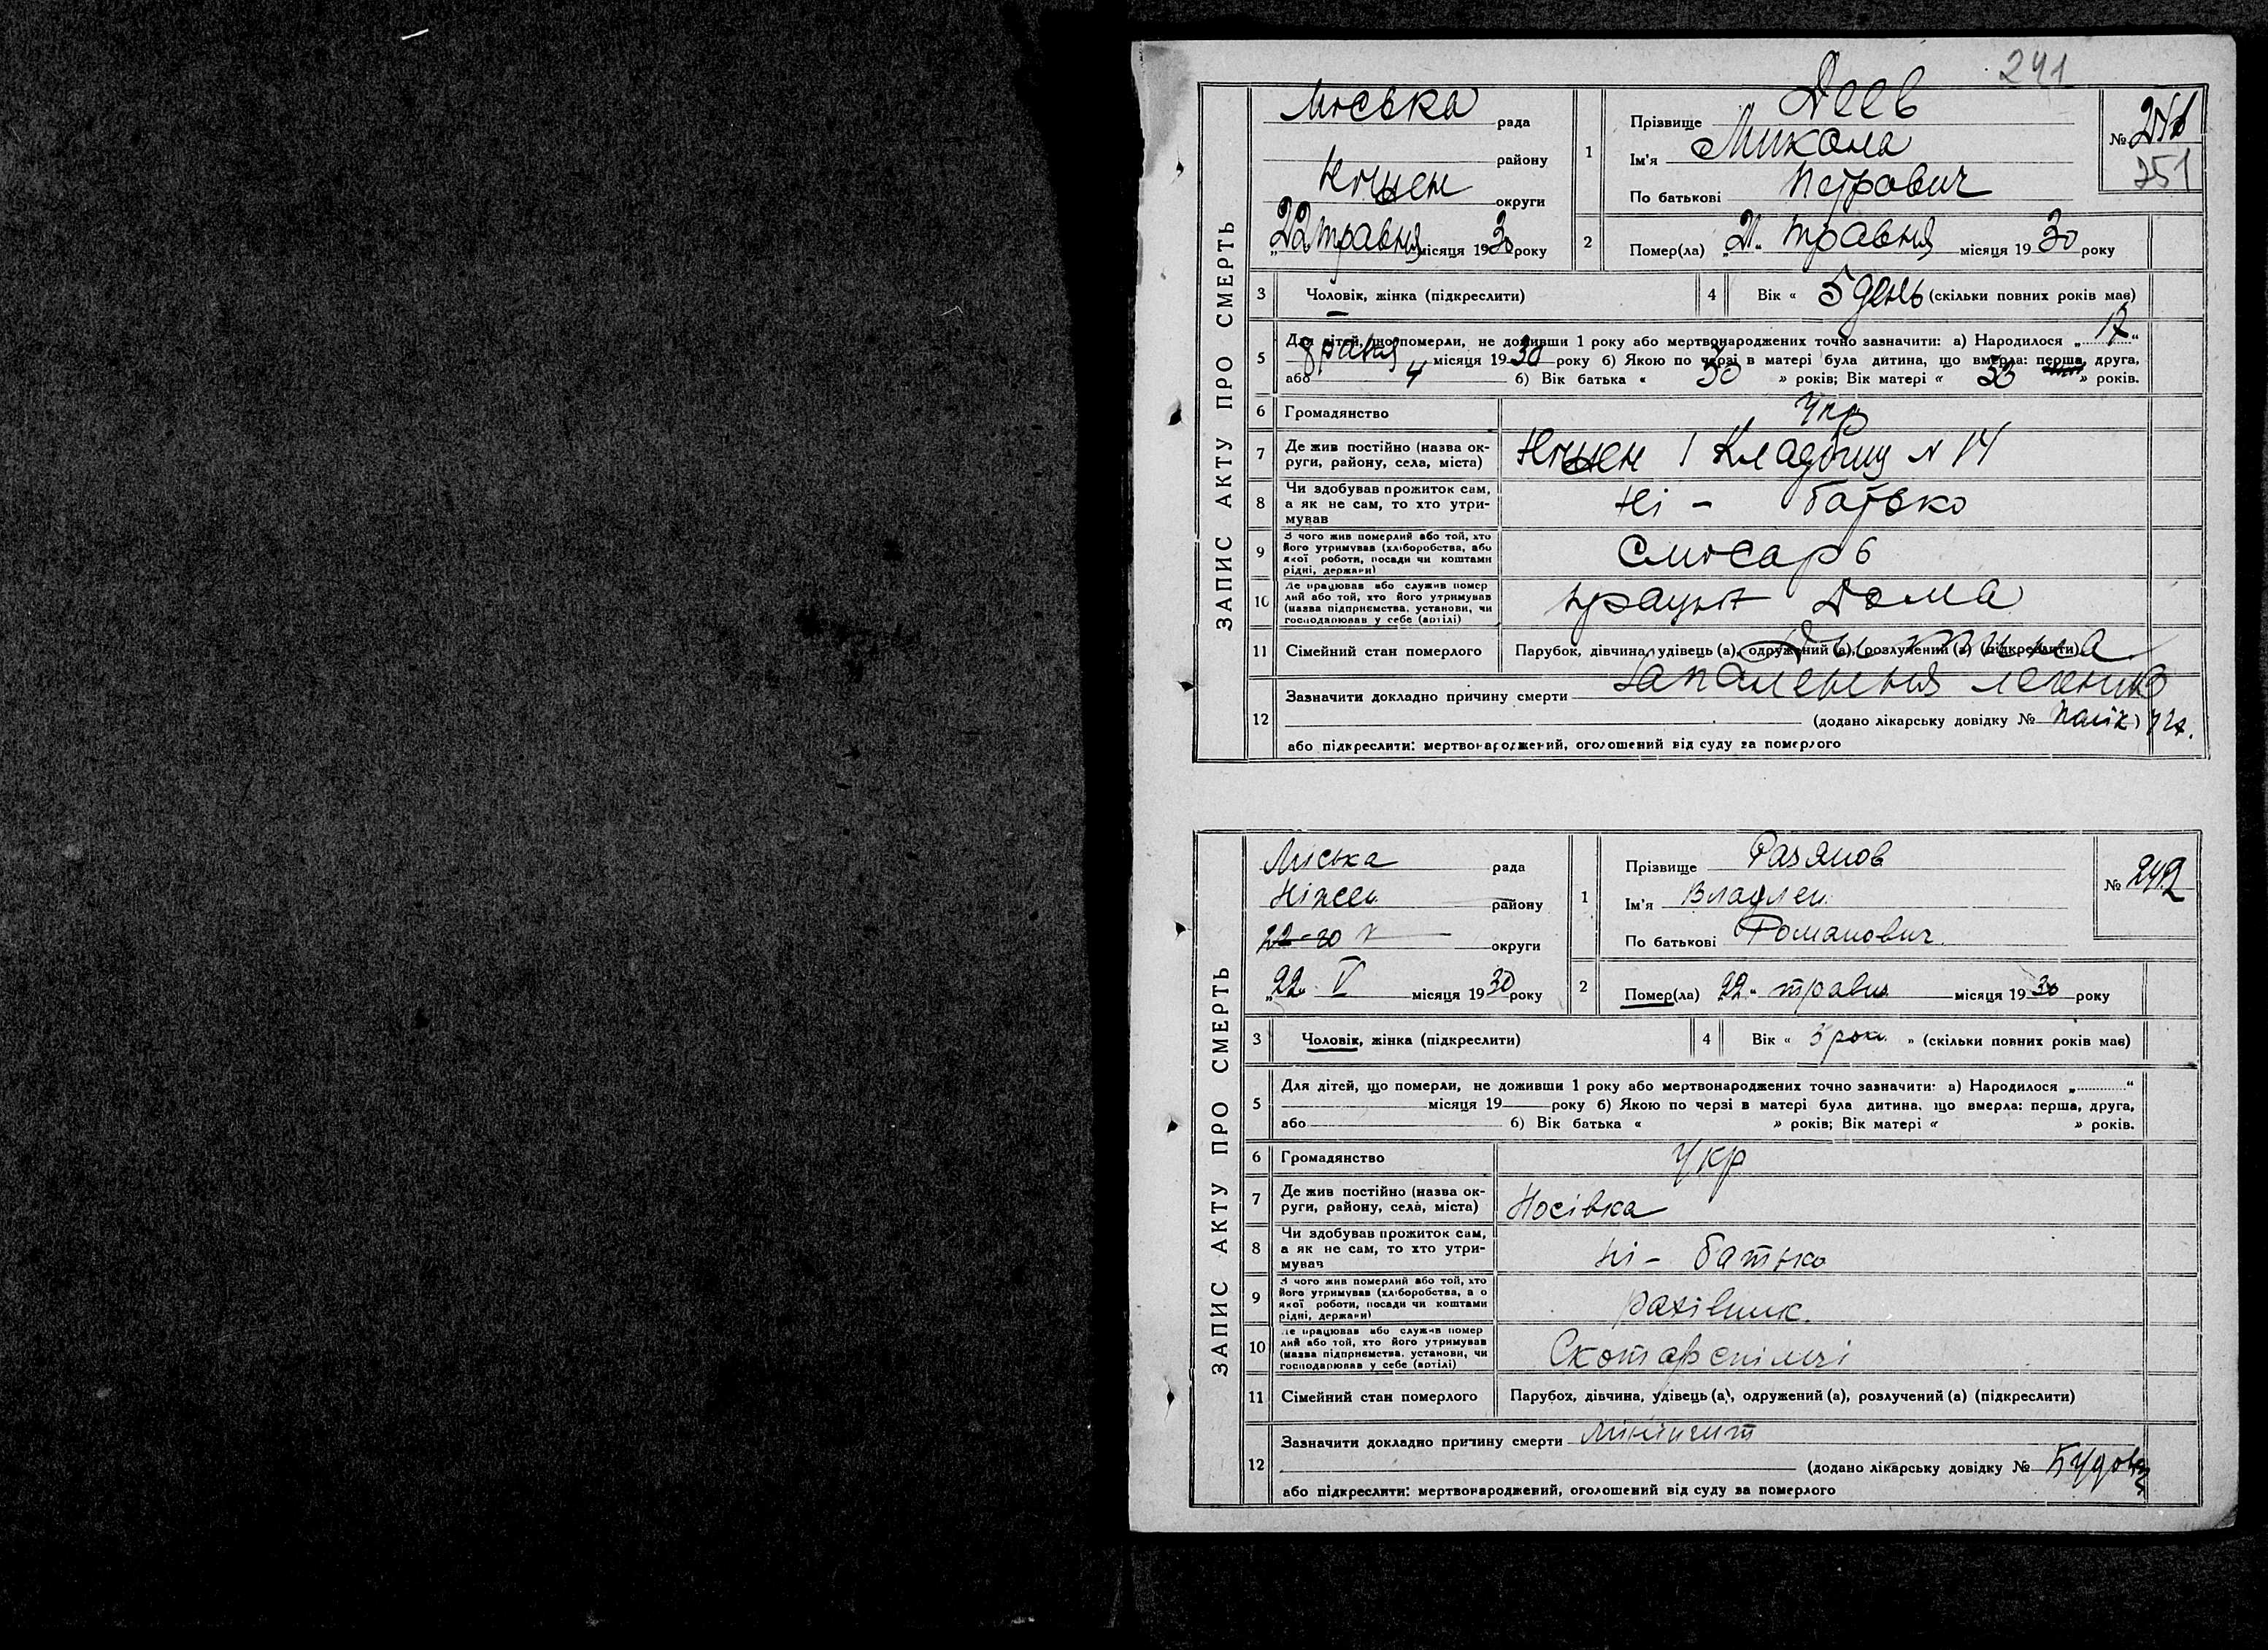 241
ЗАПИС АКТУ ПРО СМЕРТЬ
Міська рада
району
округи
„22 травня місяця 1930 року
1
Прізвище Деев
Ім'я Микола
По батькові Петрович
№ 241
251
2
Помер(ла) „21“ травня місяця 1930 року
3 Чоловік, жінка (підкреслити)
4 Вік « 5 день (скільки повних років має)
5 Для дітей, що померли, не доживши 1 року або мертвонароджених точно зазначити: а) Народилося „17“
травня місяця 1930 року б) Якою по черзі в матері була дитина, що вмерла: перша, друга,
або 4 б) Вік батька « 30 » років; Вік матері « 30 » років.
6 Громадянство Укр
7 Де жив постійно (назва округи, району, села, міста) № 14
8 Чи здобував прожиток сам, а як не сам, то хто утримував Ні - батько
9 З чого жив померлий або той, хто його утримував (хліборобства, або якої роботи, посади чи коштами рідні, держави) Слюсарь
10 Де працював або служив померлий або той, хто його утримував (назва підприємства, установи, чи господарював у себе (артілі) Дома
11 Сімейний стан померлого Парубок, дівчина, удівець (а), одружений (а), розлучений (а) (підкреслити)
12 Зазначити докладно причину смерти Запалення легенів
(додано лікарську довідку №
або підкреслити: мертвонароджений, оголошений від суду за померлого
ЗАПИС АКТУ ПРО СМЕРТЬ
Міська рада
Ніжен району
округи
„22“ V місяця 1930 року
1
Прізвище
Ім'я Владлен
По батькові Романович
№ 242
2 Помер(ла) 22“ травня місяця 1930 року
3 Чоловік, жінка (підкреслити)
4 Вік « роки » (скільки повних років має)
5 Для дітей, що померли, не доживши 1 року або мертвонароджених точно зазначити: а) Народилося „ “
місяця 19 року б) Якою по черзі в матері була дитина, що вмерла: перша, друга,
або б) Вік батька « » років; Вік матері « » років.
6 Громадянство Укр
7 Де жив постійно (назва округи, району, села, міста) Носівка
8 Чи здобував прожиток сам, а як не сам, то хто утримував Ні - батько
9 З чого жив померлий або той, хто його утримував (хліборобства, або якої роботи, посади чи коштами рідні, держави) рахівник.
10 Де працював або служив померлий або той, хто його утримував (назва підприємства, установи, чи господарював у себе (артілі)
11 Сімейний стан померлого Парубок, дівчина, удівець (а), одружений (а), розлучений (а) (підкреслити)
12 Зазначити докладно причину смерти Мінінгит
(додано лікарську довідку №
або підкреслити: мертвонароджений, оголошений від суду за померлого